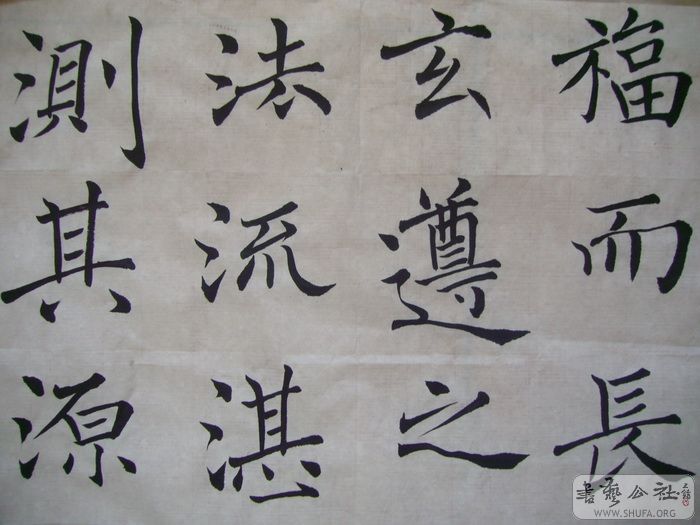 福而長
玄遵之
法流湛
測其源
書藝公社
WWW.SHUFA.ORG